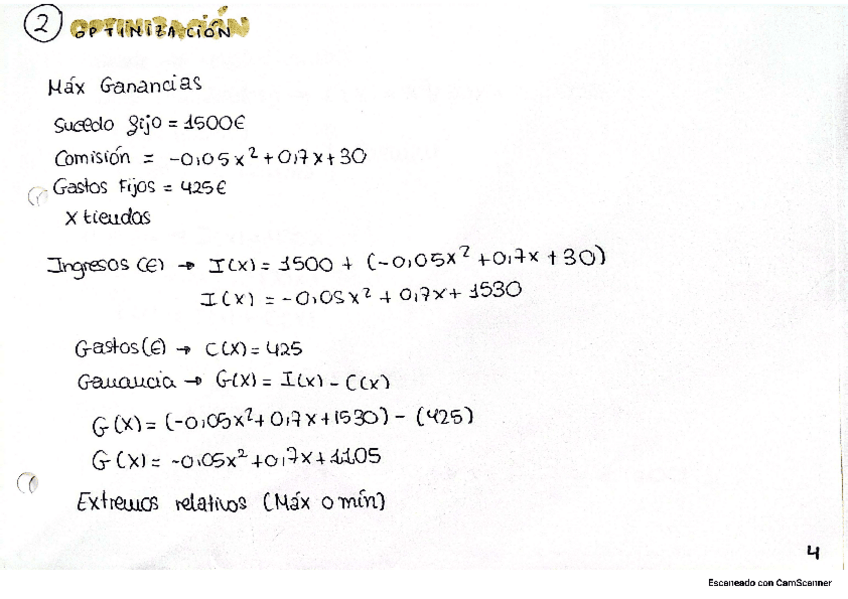 2 OPTIMIZACIÓN
Máx Ganancias
Sueldo fijo = 1500€
Comisión = -0,05x² + 0,7x + 30
Gastos Fijos = 425€
x tiendas
Ingresos (€) → I(x) = 1500 + (-0,05x² + 0,7x + 30)
I(x) = -0,05x² + 0,7x + 1530
Gastos (€) → C(x) = 425
Ganancia → G(x) = I(x) - C(x)
G(x) = (-0,05x² + 0,7x + 1530) - (425)
G(x) = -0,05x² + 0,7x + 1105
Extremos relativos (Máx o mín)
4
Escaneado con CamScanner